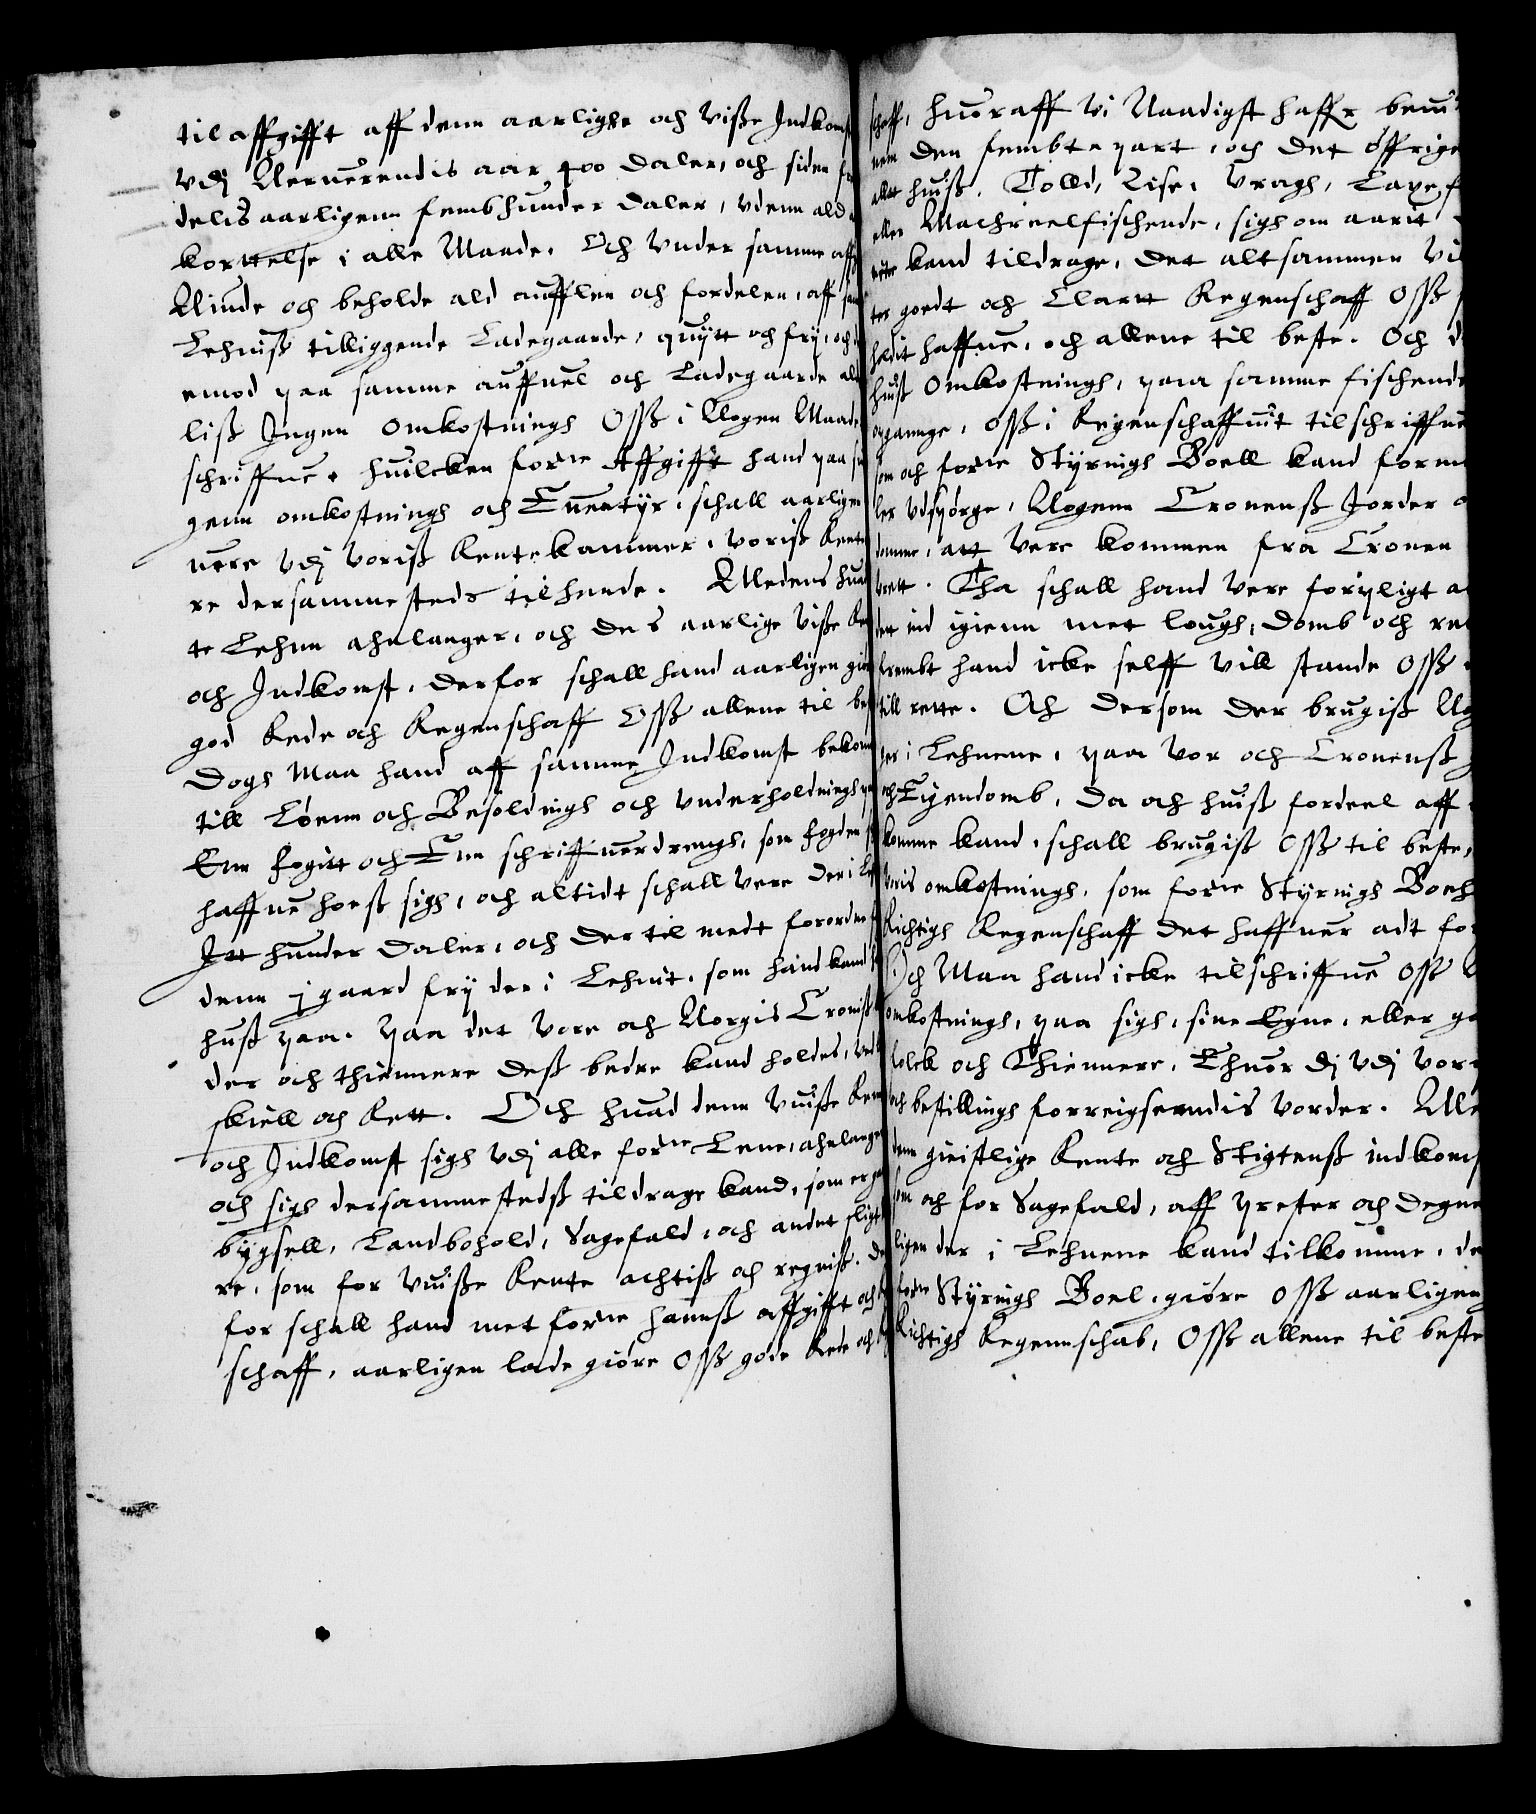 til affgifft aff denn aarlighe och Visse Indkomst
Vdj Neruerendis aar 400 Daler, och siden
delis aarligenn fembhunder Daler, vdenn ald
kortttelse i alle Maade. Och Vnder samme
Niude och beholde ald aufflen och fordelen, aff
Lehniß tilliggende Ladegaarde, quÿtt och frÿ, och
emod paa samme auffuel och Ladegaarde
liß Ingen Omkostnings Oss i Nogen Maade
schriffue. huilcken forne Affgifft hand paa
genn omkostnings och Euentÿr, schall aarligen
uere Vdj Voriß Rentekammer, Voriß Rente
re dersammesteds tilhende. Medens huad
te Lehnn ahnlanger, och des aarlige Visse
och Indkomst, derfor schall hand aarligen giøre
god Rede och Regenschaff Oss allene til beste
Dogh Maa hand aff samme Indkomst bekomme
till Lønn och Besoldnings och Vnderholdnings
Enn fogitt och Enn schriffuerdrengh, som fogden
haffue hoeß sigh, och altidt schall Vere der i
Itt hunder Daler, och dertil medt forordne
denn j gaard frÿ der i Lehnit, som hand kand
huß paa. paa det Vore och Norgis Croniß
der och thiennere deß bedre kand holdes, ved
skiell och Rett. Och huad denn Vuisse Rente
och Indkomst sigh Vdj alle forne Lene, ahnlanger
och sigh dersammestedß tildrage kand, som er
bÿgsell, Landbohold, Sagefald, och andet sligt
re, som for Vuisse Rente achtiß och regniß.
for schall hand met forne hannß affgifft och
schaff, aarligen lade giøre Oss gode Rede och
huoraff Vi Naadigst haffr
den fembte part, och det öffrige
huiß. Told, Sise, Vragh, Laxe
eller Machreelfischende, sigh om aarit
kand tildrage, det altsammen
goedt och Clartt Regenschaff Oss
haffue, och allene til beste. Och
huiß Omkostnings, paa samme fischende
Oss i Regenschaffuit tilschriffue
som och forne Stÿrings Boell kand
Vdspörge, Nogenn Cronenß Jorder
att Vere kommen fra Cronen
Tha schall hand Vere forpligt
ind igienn met lough, domb och
hand icke selff Vill stande Oss
till rette. Och dersom der brugiß
i Lehnene, paa Vor och Cronenß
och Eigendomb, da och huiß fordeel aff
komme kand, schall brugiß Oss til beste,
omkostnings, som forne Stÿrings
Richtigh Regenschaff det haffuer adt
Och Maa hand icke tilschriffue Oss
omkostnings, paa sigh, sine Egne, eller
folck och Thiennere, Ehuor dj Vdj Vore
och bestillings forreigsendis Vorder.
gieistlige Rente och Stigtenß indkomst
som och for Sagefald, aff prester och Degne
der i Lehnene kand tilkomme,
forne Stÿrings Boel, giøre Oss aarligen
Richtigh Regennschab, Oss allene til beste